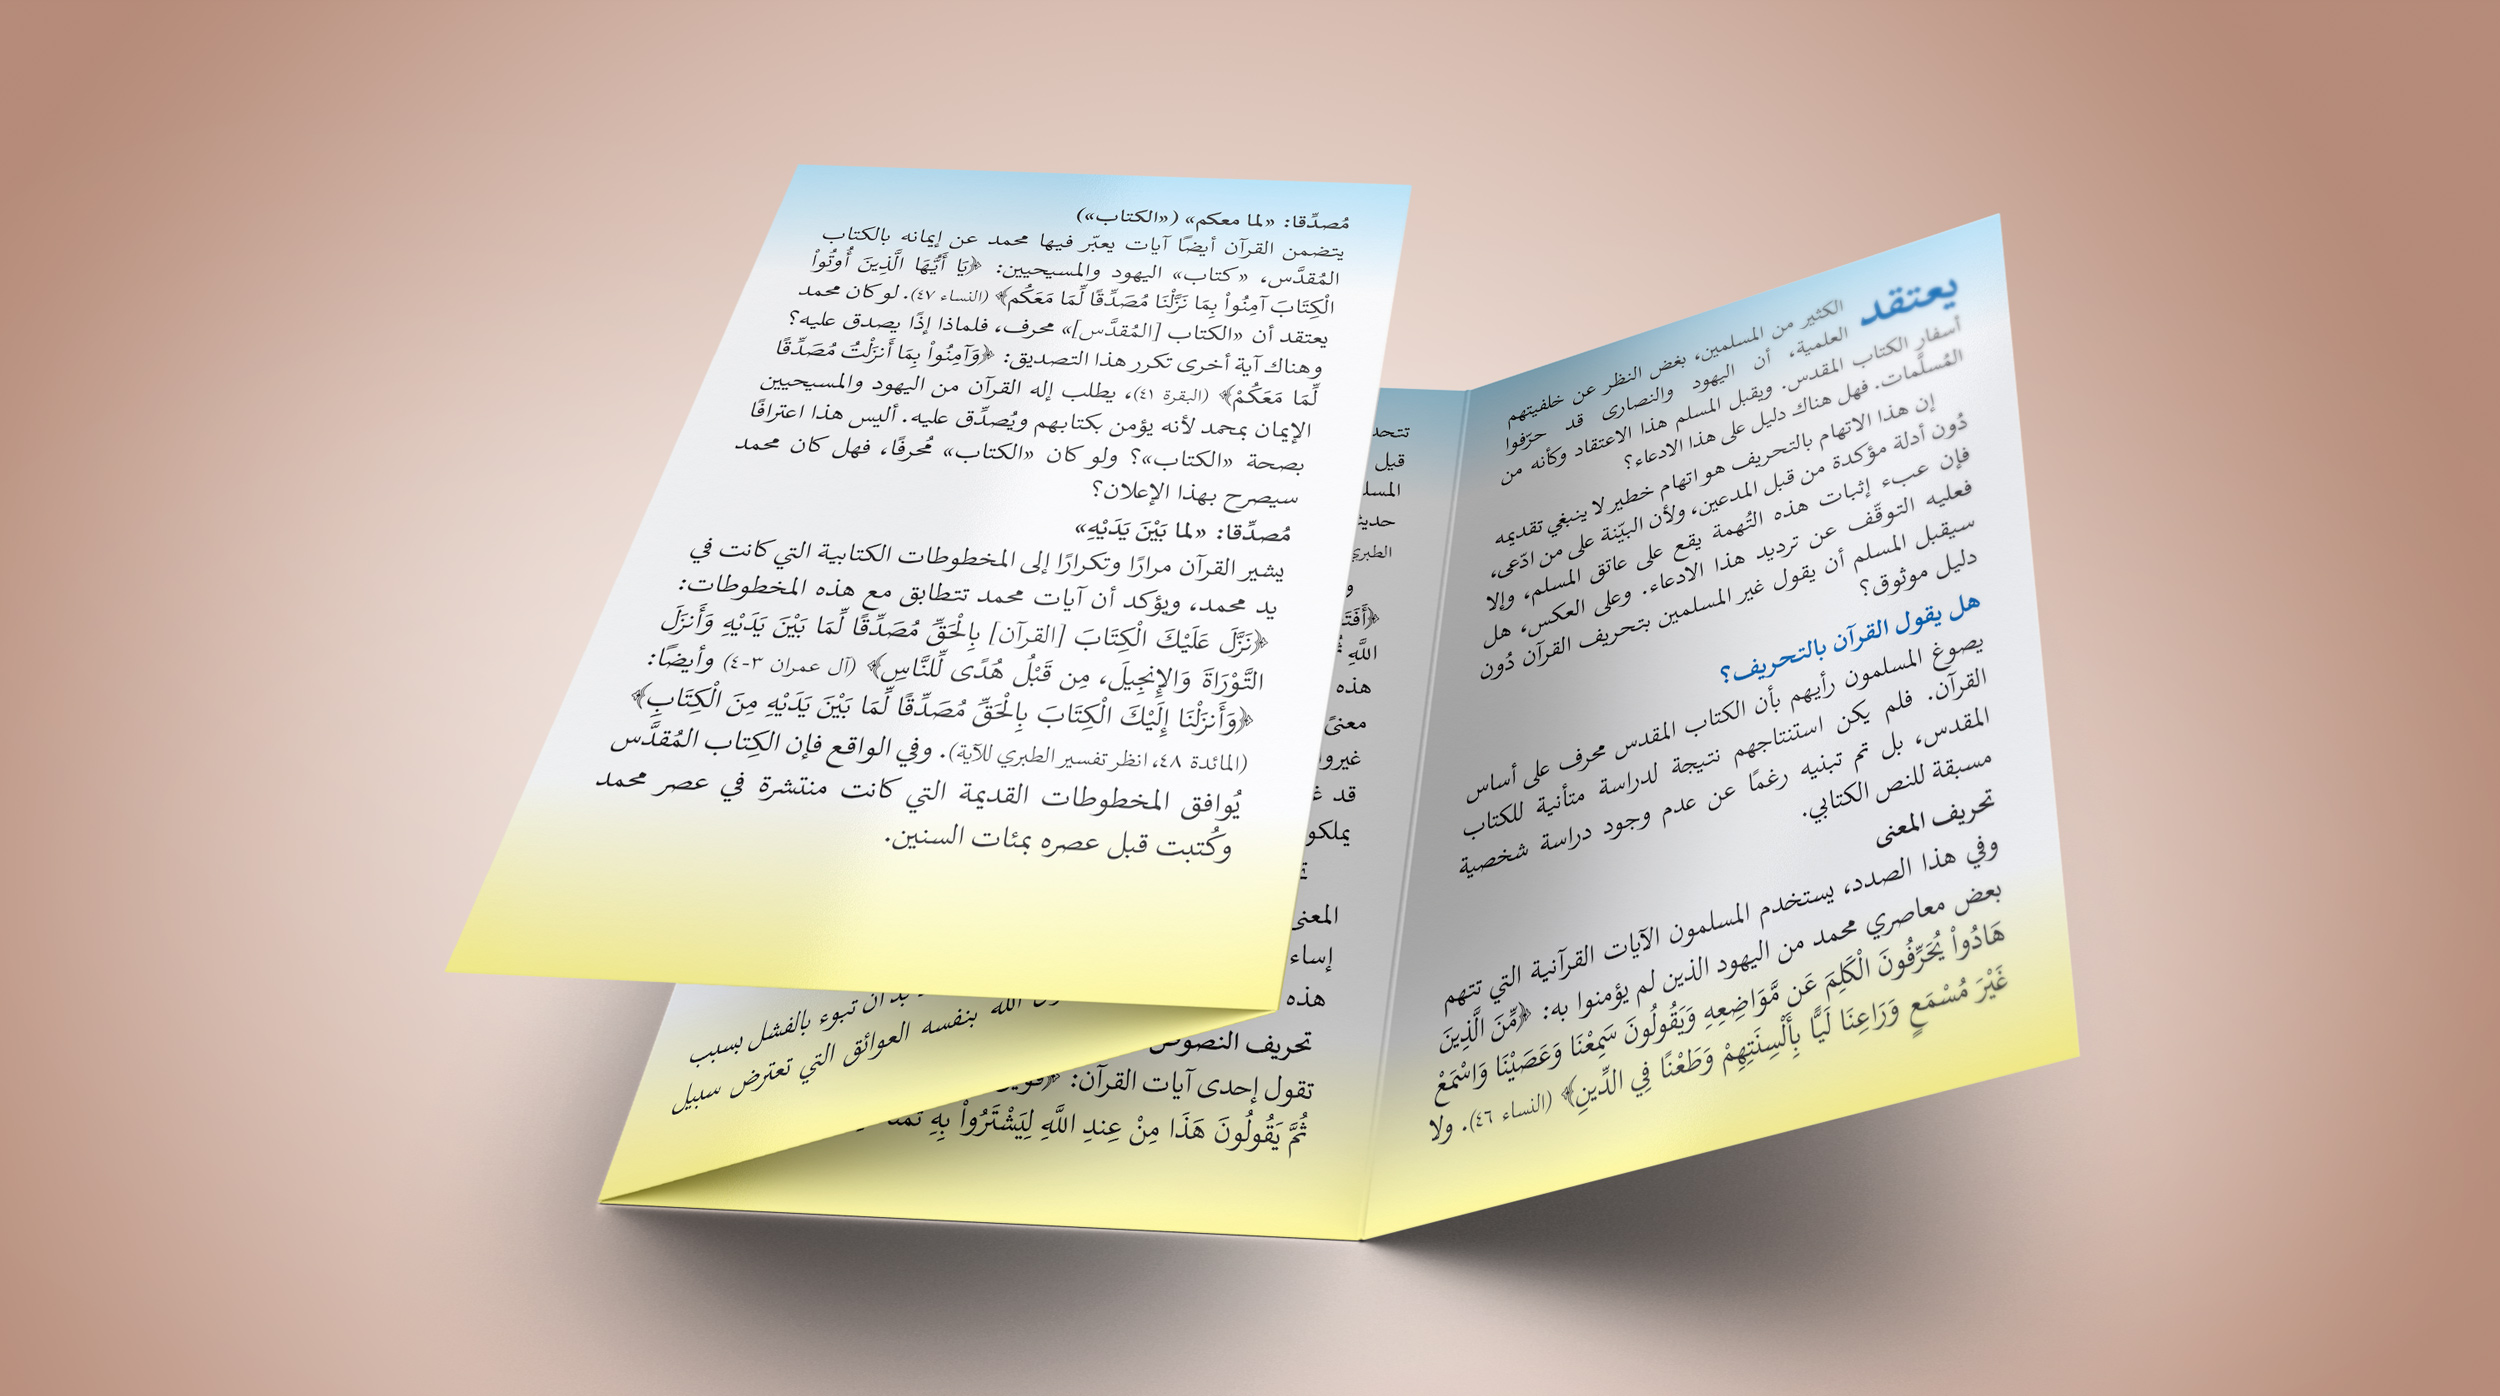 يعتقد الكثير من المسلمين، بغض النظر عن خلفيتهم
العلمية، أن اليهود والنصارى قد حرّفوا
أسفار الكتاب المقدس. ويقبل المسلم هذا الاعتقاد وكأنه من
المُسلَّمات. فهل هناك دليل على هذا الادعاء؟
إن هذا الاتهام بالتحريف هو اتهام خطير لا ينبغي تقديمه
دُون أدلة مؤكدة من قبل المدعين، ولأن البيّنة على من ادّعى،
فإن عبء إثبات هذه التُهمة يقع على عاتق المسلم، وإلا
فعليه التوقّف عن ترديد هذا الادعاء. وعلى العكس، هل
سيقبل المسلم أن يقول غير المسلمين بتحريف القرآن دُون
دليل موثوق؟
هل يقول القرآن بالتحريف؟
يصوغ المسلمون رأيهم بأن الكتاب المقدس محرف على أساس
القرآن. فلم يكن استنتاجهم نتيجة لدراسة متأنية للكتاب
المقدس، بل تم تبنيه رغمًا عن عدم وجود دراسة شخصية
مسبقة للنص الكتابي.
تحريف المعنى
وفي هذا الصدد، يستخدم المسلمون الآيات القرآنية التي تتهم
بعض معاصري محمد من اليهود الذين لم يؤمنوا به: ﴿مِّنَ الَّذِينَ
هَادُواْ يُحَرِّفُونَ الْكَلِمَ عَن مَّوَاضِعِهِ وَيَقُولُونَ سَمِعْنَا وَعَصَيْنَا وَاسْمَعْ
غَيْرَ مُسْمَعٍ وَرَاعِنَا لَيًّا بِأَلْسِنَتِهِمْ وَطَعْنًا فِي الدِّينِ﴾ (النساء ٤٦). ولا
قيل
هذه
معنىً
قد
المعنى
هذه
تحريف النصوص
تقول إحدى آيات القرآن:
ثُمَّ يَقُولُونَ هَذَا مِنْ عِندِ اللَّهِ لِيَشْتَرُواْ بِهِ
أن تبوء بالفشل بسبب
الله بنفسه العوائق التي تعترض سبيل
مُصدِّقا: «لما معكم» («الكتاب»)
يتضمن القرآن أيضًا آيات يعبّر فيها محمد عن إيمانه بالكتاب
المُقدَّس، «كتاب» اليهود والمسيحيين: ﴿يَا أَيُّهَا الَّذِينَ أُوتُواْ
الْكِتَابَ آمِنُواْ بِمَا نَزَّلْنَا مُصَدِّقًا لِّمَا مَعَكُم﴾ (النساء ٤٧). لو كان محمد
يعتقد أن «الكتاب [المُقدَّس]» محرف، فلماذا إذًا يصدق عليه؟
وهناك آية أخرى تكرر هذا التصديق: ﴿وَآمِنُواْ بِمَا أَنزَلْتُ مُصَدِّقًا
لِّمَا مَعَكُمْ﴾ (البقرة ٤١)، يطلب إله القرآن من اليهود والمسيحيين
الإيمان بمحمد لأنه يؤمن بكتابهم ويُصدِّق عليه. أليس هذا اعترافًا
بصحة «الكتاب»؟ ولو كان «الكتاب» مُحرفًا، فهل كان محمد
سيصرح بهذا الإعلان؟
مُصدِّقا: «لما بَيْنَ يَدَيْهِ»
يشير القرآن مرارًا وتكرارًا إلى المخطوطات الكتابية التي كانت في
يد محمد، ويؤكد أن آيات محمد تتطابق مع هذه المخطوطات:
﴿نَزَّلَ عَلَيْكَ الْكِتَابَ [القرآن] بِالْحَقِّ مُصَدِّقًا لِّمَا بَيْنَ يَدَيْهِ وَأَنزَلَ
التَّوْرَاةَ وَالإِنجِيلَ، مِن قَبْلُ هُدًى لِّلنَّاسِ﴾ (آل عمران ٣-٤) وأيضًا:
﴿وَأَنزَلْنَا إِلَيْكَ الْكِتَابَ بِالْحَقِّ مُصَدِّقًا لِّمَا بَيْنَ يَدَيْهِ مِنَ الْكِتَابِ﴾
(المائدة ٤٨، انظر تفسير الطبري للآية). وفي الواقع فإن الكِتاب المُقدَّس
يُوافق المخطوطات القديمة التي كانت منتشرة في عصر محمد
وكُتبت قبل عصره بمئات السنين.